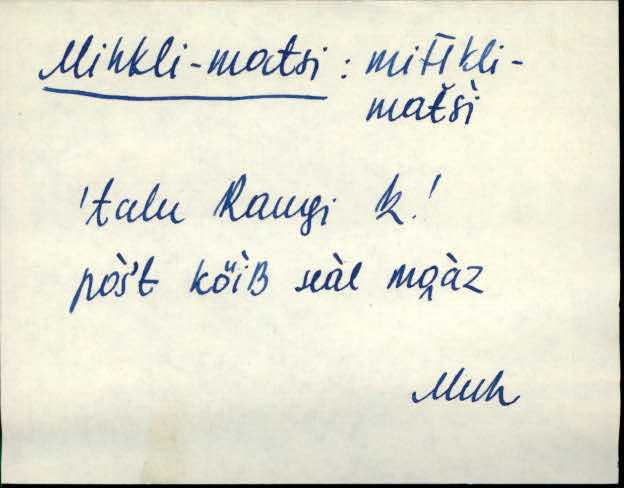 Mihkli-matsi : mihkli-
matši
'talu Raugi k.'
pòšt köìʙ seàl maàz
Muh